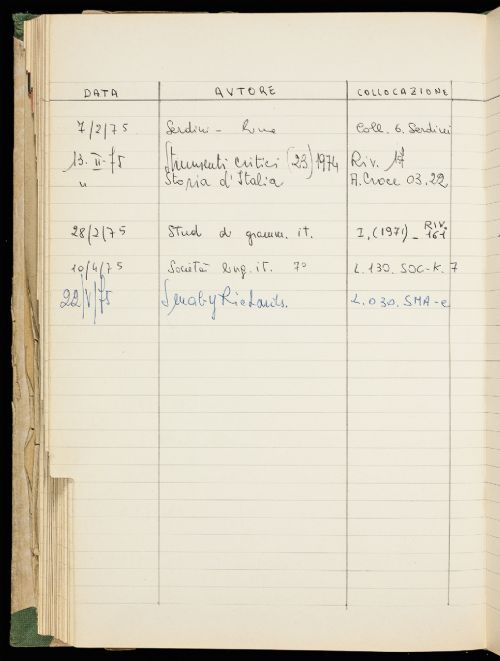 DATA AUTORE COLLOCAZIONE
7/2/75 Serdini - Rime Coll. 6. Serdini
13. II. 75 Strumenti critici (23) 1974 Riv. 17
" Storia d'Italia A. Croce 03.22
28/2/75 Stud di gramm. it. I, (1971) - RIV. 161
10/4/75 Società ling. it. 7° L. 130. SOC-K. 7
22/V/75 Smaby Richards. L. 030. SMA-e